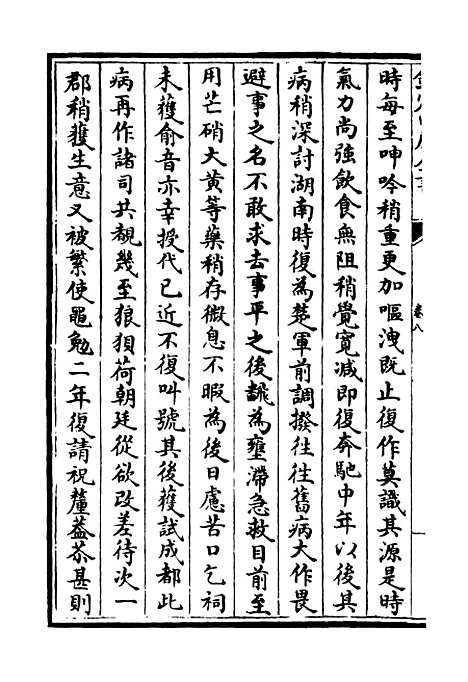 時每至呻吟稍重更加嘔洩既止復作莫識其源是時
氣力尚強飲食無阻稍覺寛減即復奔馳中年以後其
病稍深討湖南時復為楚軍前調撥往往舊病大作畏
避事之名不敢求去事平之後為壅滯急救目前至
用芒硝大黄等藥稍存微息不暇為後日慮苦口乞祠
未獲俞音亦幸授代已近不復叫號其後獲試成都此
病再作諸司共覩幾至狼狽荷朝廷從欲改差待次一
郡稍獲生意又被繁使黽勉二年復請祝釐葢恭甚則
卷八